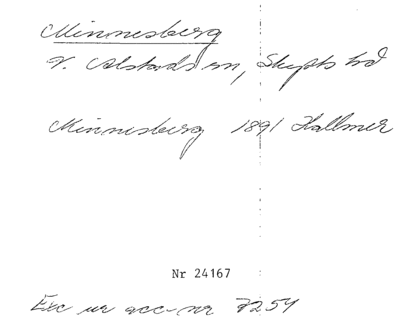 Minnesberg
V. Alstads sn, Skytts hd
Minnesberg 1891 Hallmer
Nr 24167
Exc ur acc-nr 7254